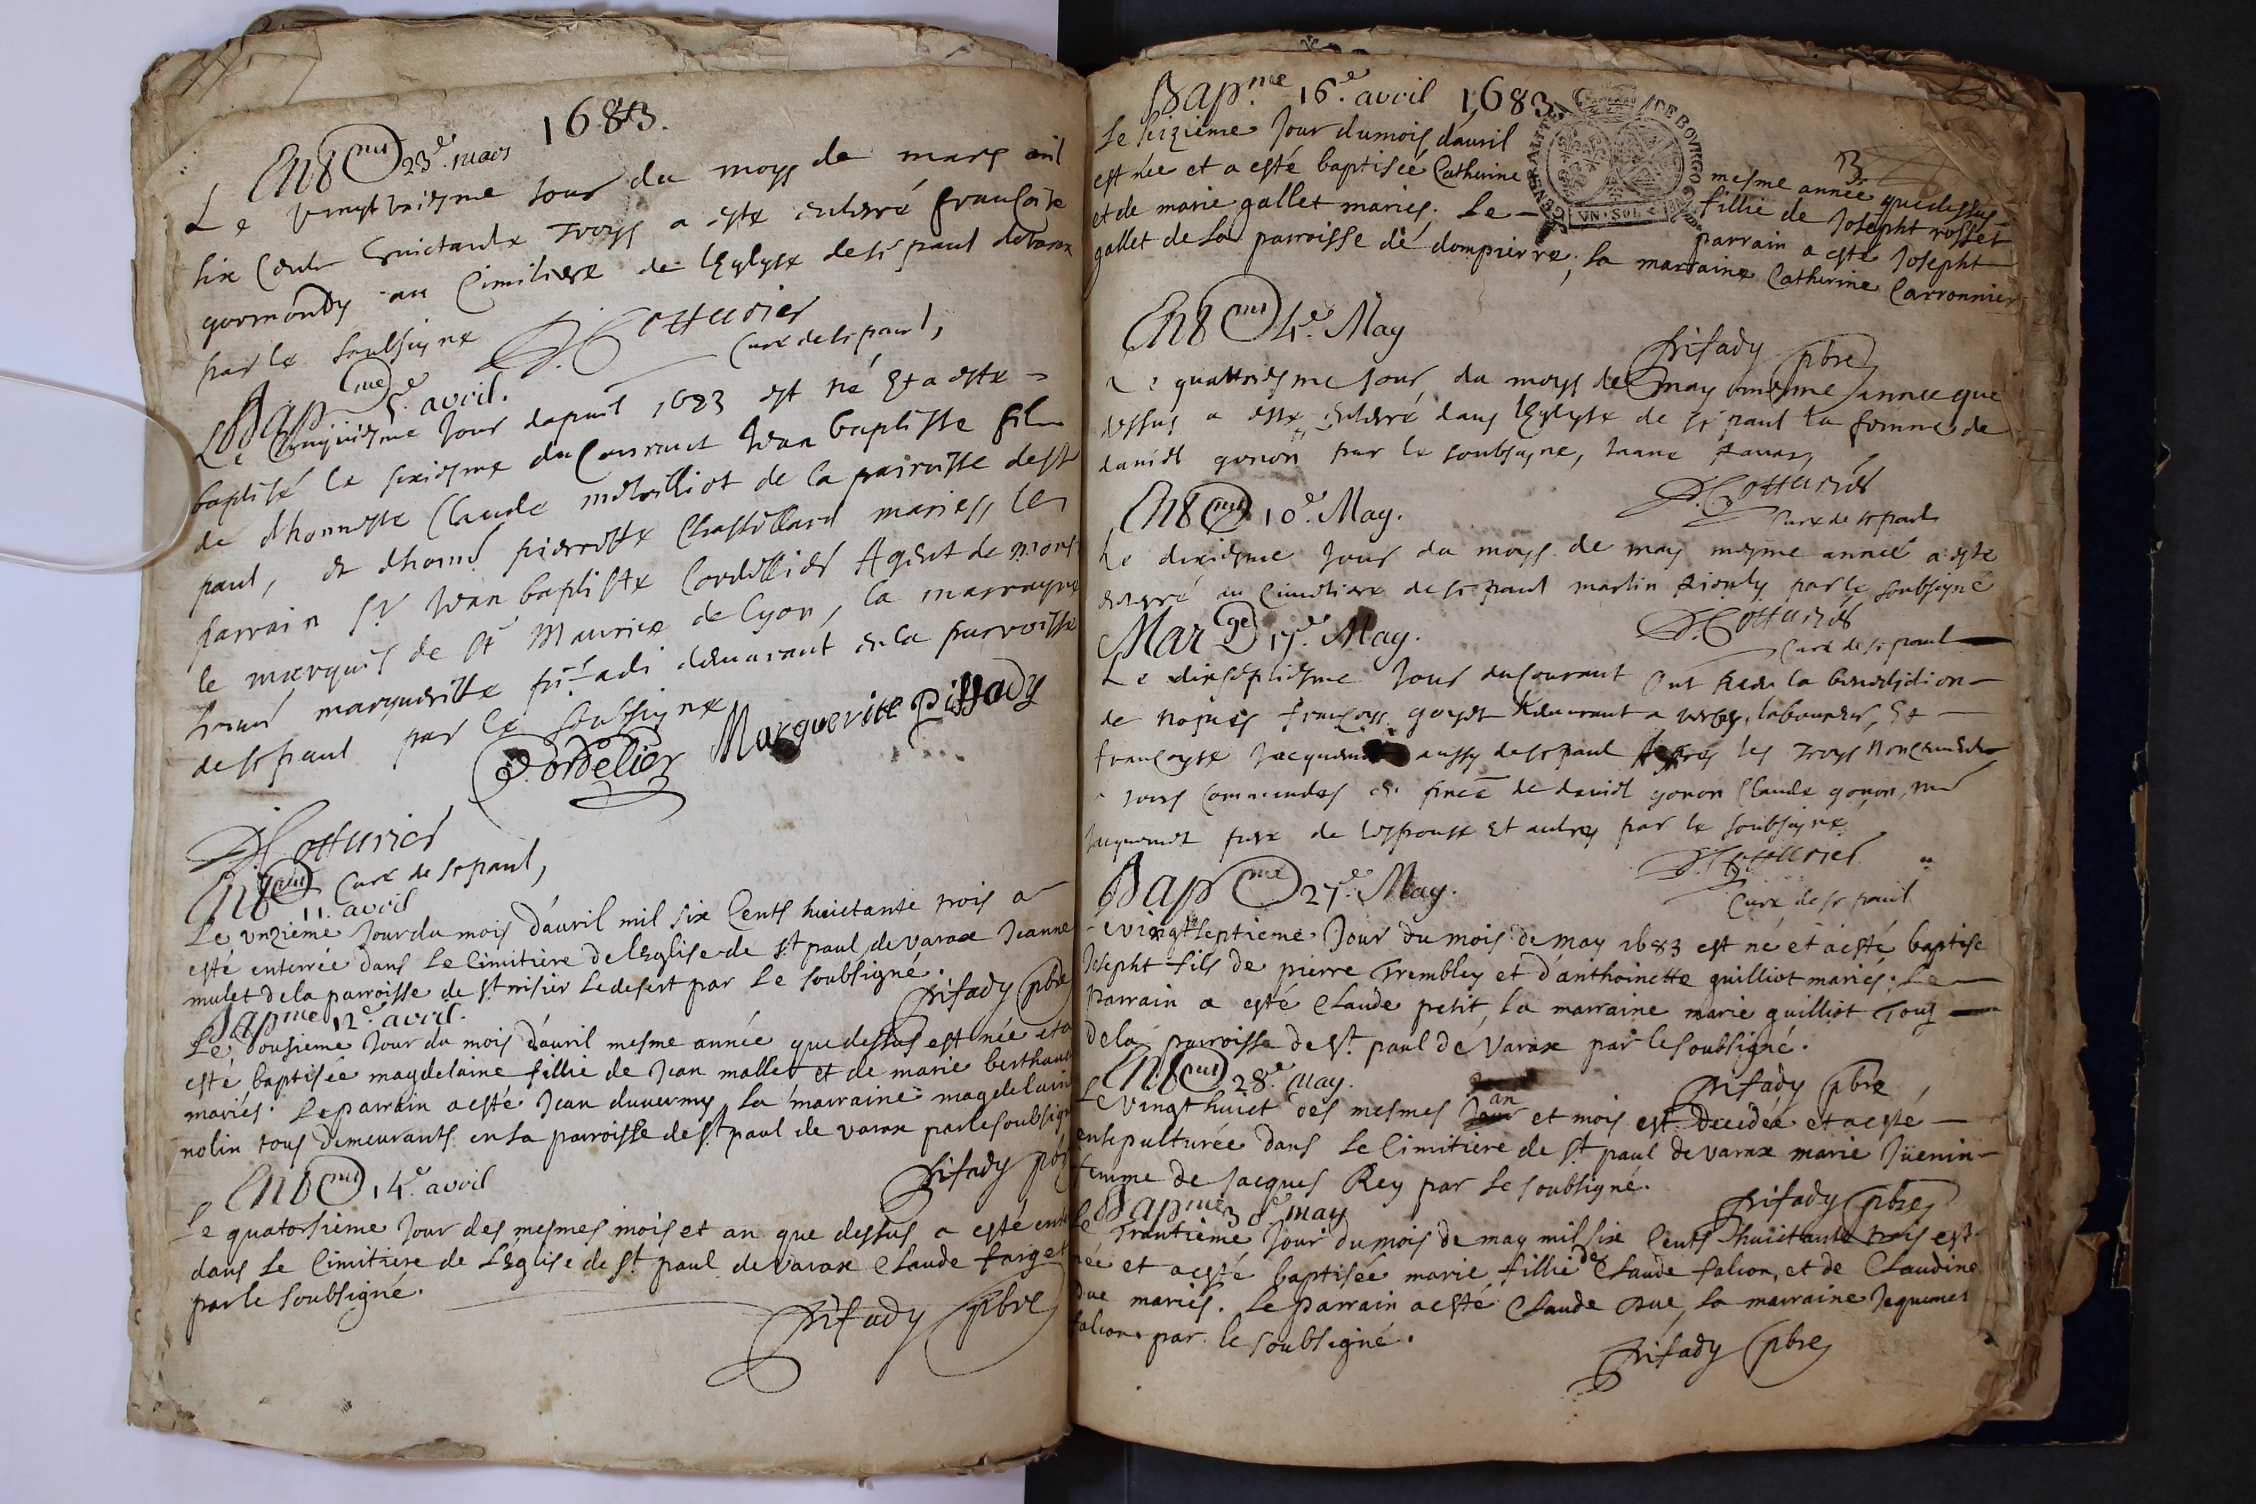 1683.
Ent mt 23e. mars
Le vingt troiesme jour du moys de mars mil
six cents huictante troys a este enterré françoise
gormondy au cimitiere de l'Eglyse de st paul devarax
par le soubsigne D. Cotturier
Curé de st paul,
Bap me 5e. avril.
Le cinquiesme jour dapvril 1683 est né Et a este
baptisé le sixiesme du Courant Jean baptiste fils
de dhonneste Claude de la pairoisse de st
paul, et dhon pierrette Chastillard maries, le
parrain sr Jean baptiste Cordellier Agent de monsr
le marquis de st Maurice de Lyon, la marrayne
margueritte demurant en la parroisse
de st paul par le soubsigne
Cordelier Marguerite Pissady
D. Cotturier
Curé de st paul,
Ent mt 11. avril
Le unzieme Jour du mois d'avril mil six Cents huictante trois a
esté enterrée dans Le Cimitiere de l'Eglise de st. paul de varax Jeanne
mulet de la parroisse de st nisier Le desert par Le soubsigné.
Prisady pbre
Bap me 12e. avril.
Le dousieme Jour du mois d'avril mesme année que dessus est née et a
esté baptisée magdelaine fillie de Jean mallet et de marie berthaud
mariés. Le parrain a esté Jean duvernay La marraine magdelaine
nolin tous demeurants en La parroisse de st paul de varax par le soubsigné
Prisady pbre
Ent mt 14e. avril
Le quatorsieme Jour des mesmes mois et an que dessus a esté enterré
dans Le Cimitiere de L'Eglise de st. paul de varax Claude farget
par le soubsigné.
Prisady pbre
Bap.me 16e. avril 1683.
Le seizieme Jour du mois d'avril mesme année que dessus
est née et a esté baptisée Catherine fillie de Josepht rosset
et de marie gallet mariés. Le parrain a esté Josepht
gallet de La parroisse de dompierre, La marraine Catherine Carronnier
GENERALITE DE BOVRGOG
VN. SOL
Prisady pbre
Ent mt 4e. May
Le quattriesme Jour du moys de may mesme annee que
dessus a este enterré dans l'Eglyse de st paul la femme de
david gonon par le soubsigne,
D. Cotturier
Curé de st paul
Ent mt 10e. May.
Le dixiesme Jour du moys de may mesme anneé a este
enterré au Cimitiere de st paul martin par le soubsigné
D. Cotturier
Curé de st paul
Mar ge 17e. May.
Le dixseptiesme Jour du Courant Ont la benediction
de nopces françoys goyet demurant a laboureur, Et
françoyse Jacquemet aussy de st paul Apres les troys
de david gonon Claude gonon,
Jacquemet pere de lespouse Et autres par le soubsigne
D. Cotturier
Curé de st paul
Bap me 27e. May.
Le vingt septieme Jour du mois de may 1683 est né et a esté baptisé
Josepht fils de pierre Trembley et d'anthoinette guilliot mariés. Le
parrain a esté Claude petit, La marraine marie guilliot Tous
de la parroisse de st. paul de Varax par le soubsigné.
Prisady pbre
Ent mt 28e. May.
Le vingt huict des mesmes an et mois est decedée et a esté
ensepulturée dans Le Cimitiere de st paul de varax marie Juenin
femme de Jacques Rey par Le soubsigné.
Prisady pbre
Bap me 30e. may
Le Trantieme Jour du mois de may mil six Cents huictante trois est
née et a esté baptisée marie fillie de Claude falcon, et de Claudine
due mariés. Le parrain a esté Claude due, La marraine Jaquemet
falcon par le soubsigné.
Prisady pbre